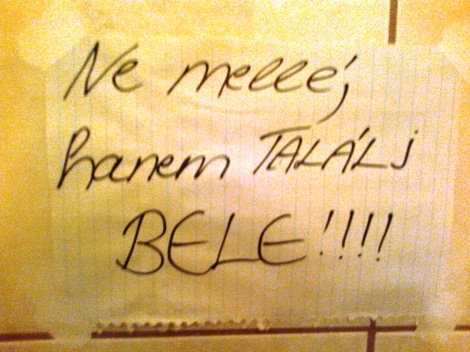 Ne melléj
hanem TALÁLJ
BELE!!!!